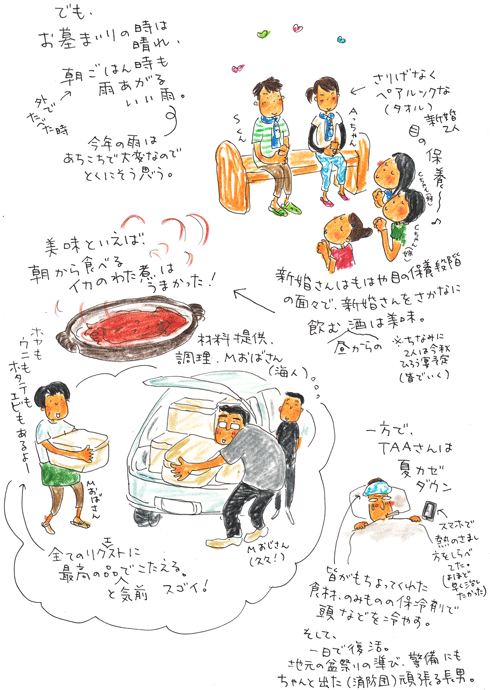 でも、
お墓まいりの時は
晴れ、
朝ごはん時も
雨あがる
いい雨。
外で
たべた時
今年の雨は
あちこちで大変なので
とくにそう思う。
さりげなく
ペアルックな
(タオル)
Sくん
A.ちゃん
新婚
2人
目の保養〜〜♪
Cちゃん(姉)
Cちゃん(妹)
新婚さんはもはや目の保養段階
の面々で、新婚さんをさかなに
飲む酒は美味。
昼からの
※ちなみに
2人は今秋
ひろう宴予定
(皆でいく)
美味といえば、
朝から食べる
イカのわた煮は
うまかった!
材料提供、
調理、Mおばさん
(海人)
ホヤも
ウニも
ホタテも
エビもあるよ
Mおばさん
Mおじさん
(久々!)
全てのリクエストに
最高の品でこたえる。
人
と気前 スゴイ!
一方で、
TAAさんは
夏カゼ
ダウン
スマホで
熱のさまし
方をしらべ
てた。
(よほど
早く治し
たかった)
皆がもちよってくれた
食材、のみものの保冷剤で
頭などを冷やす。
そして、
一日で復活。
地元の盆祭りの準び、警備にも
ちゃんと出た(消防団)頑張る長男。